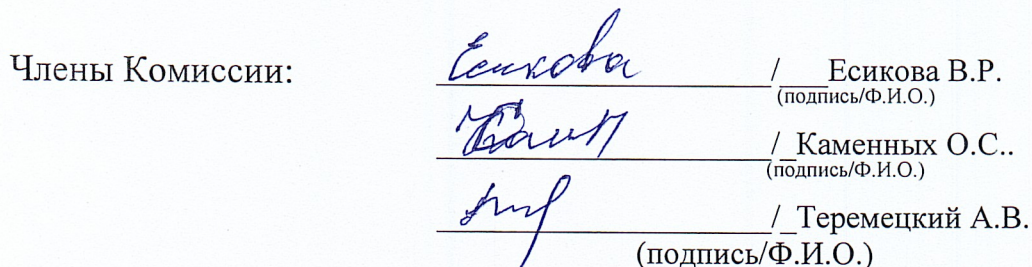 Члены Комиссии: Есикова /___Есикова В.Р.
(подпись/Ф.И.О.)
/_Каменных О.С..
(подпись/Ф.И.О.)
/_Теремецкий А.В.
(подпись/Ф.И.О.)